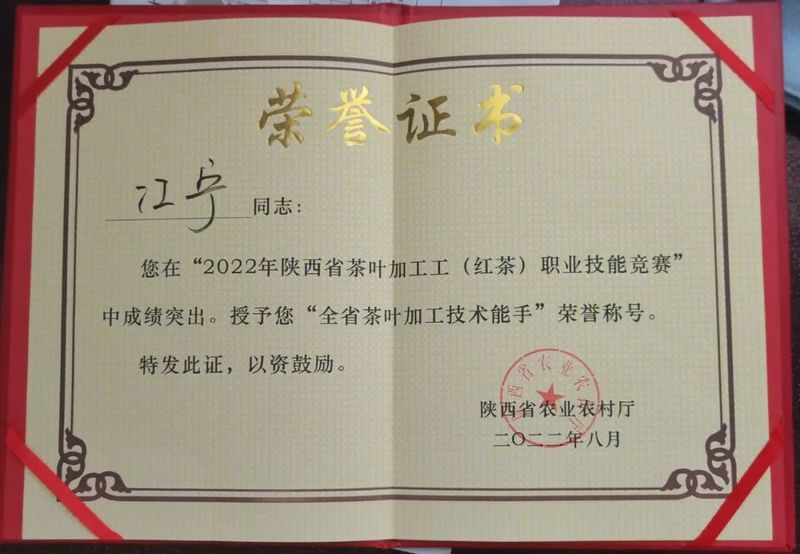 荣誉证书
江宁 同志：
您在“2022年陕西省茶叶加工工（红茶）职业技能竞赛”
中成绩突出。授予您“全省茶叶加工技术能手”荣誉称号。
特发此证，以资鼓励。
陕西省农业农村厅
二〇二二年八月
陕西省农业农村厅